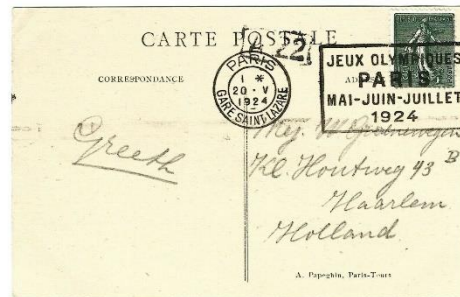 CARTE POSTALE
22
CORRESPONDANCE
PARIS
1 *
20 - V
1924
GARE SAINT-LAZARE
JEUX OLYMPIQUES
PARIS
MAI-JUIN-JUILLET
1924
Greeth
Mej. W.
Kl. Houtweg 43 B
Haarlem
Holland
A. Papeghin, Paris-Tours